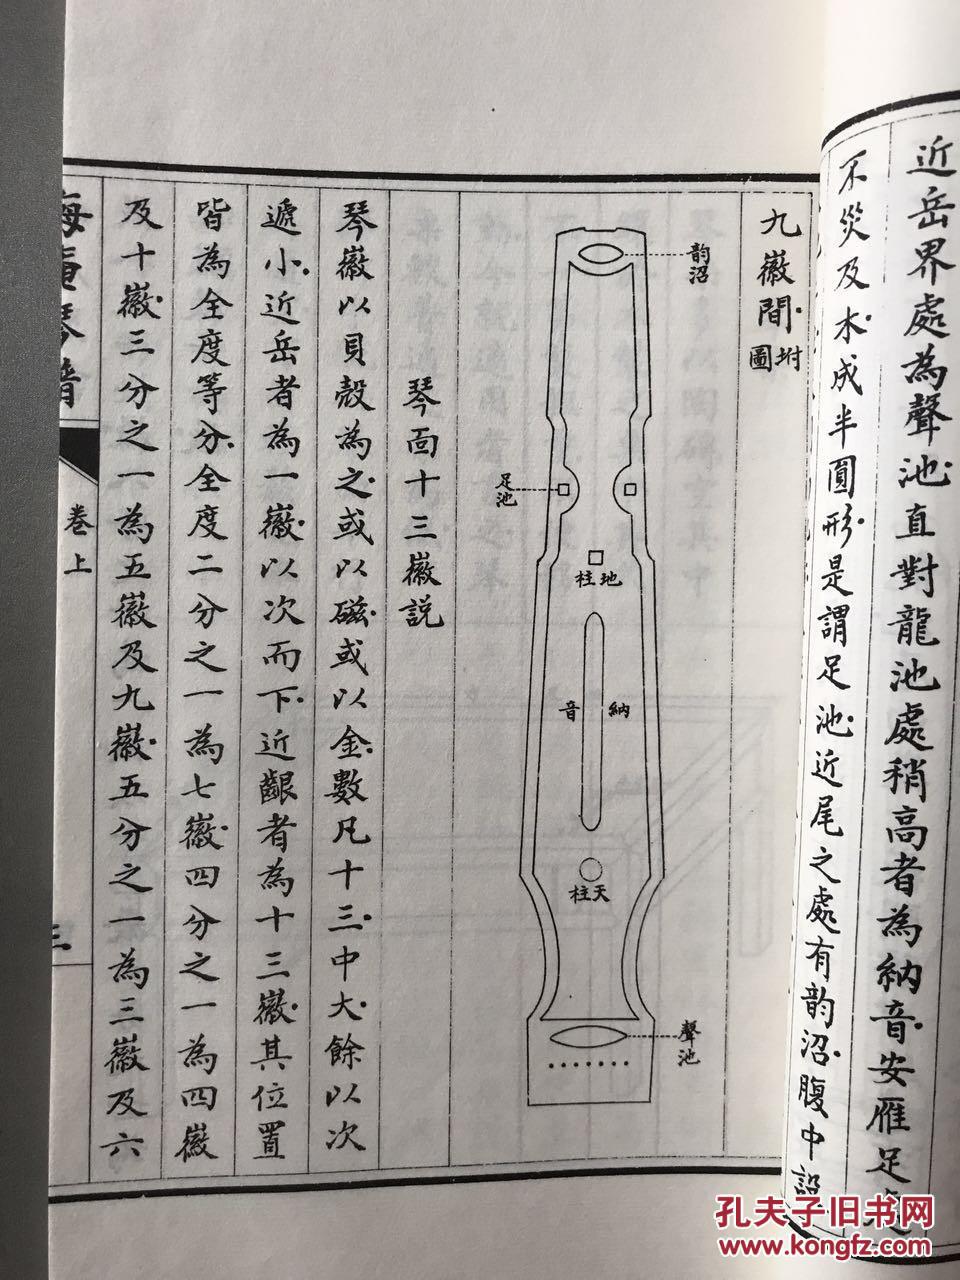 近岳界處為聲池直對龍池處稍高者為納音安雁足
不災及木成半圓形是謂足池近尾之處有韵沼腹中設
九徽間坿圖
韵沼
足池
柱地
音納
柱天
聲池
琴面十三徽説
琴徽以貝殻為之或以磁或以金數凡十三中大餘以次
遞小近岳者為一徽以次而下近齦者為十三徽其位置
皆為全度等分全度二分之一為七徽四分之一為四徽
及十徽三分之一為五徽及九徽五分之一為三徽及六
琴譜
卷上
三
孔夫子旧书网
www.kongfz.com